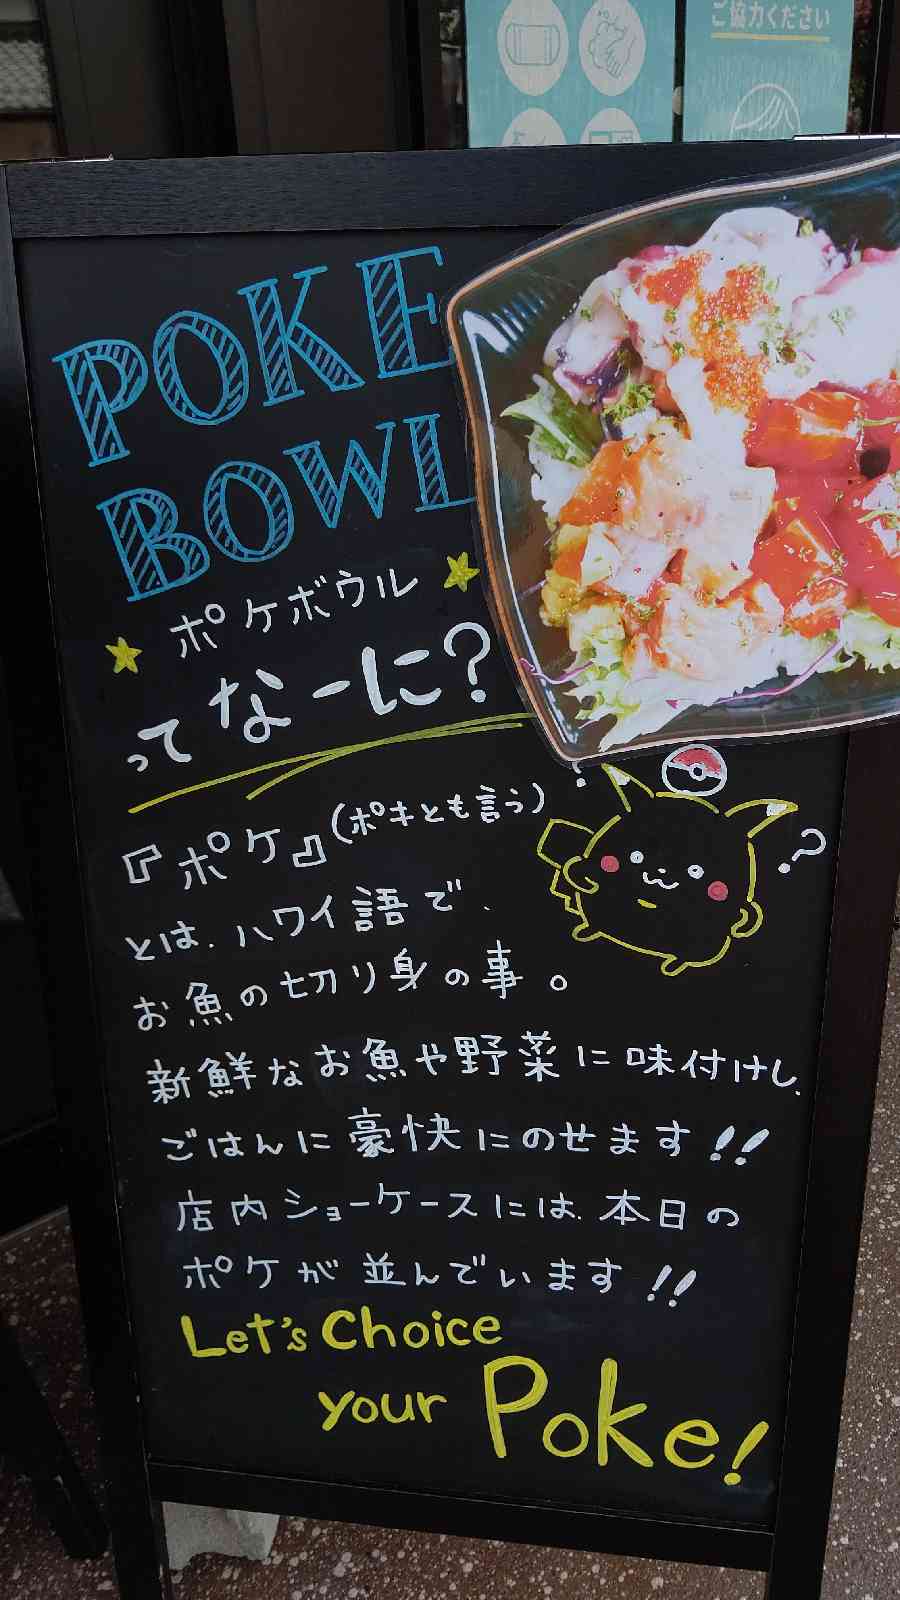 ご協力ください
POKE
BOWL
ポケボウル
ってなーに?
『ポケ』(ポキとも言う)
とは、ハワイ語で、
お魚の切り身の事。
新鮮なお魚や野菜に味付けし、
ごはんに豪快にのせます!!
店内ショーケースには、本日の
ポケが並んでいます!!
Let's Choice
your Poke!
? ?